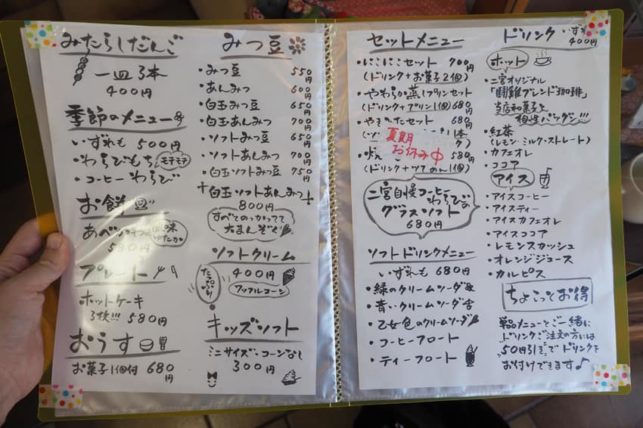 みたらしだんご
一皿3本
400円
季節のメニュー
・いずれも 500円
・わらびもち モチモチ
・コーヒーわらび
お餅
あべかわ
580円
プレート
ホットケーキ
3枚!!! 580円
おうす
お菓子1個付 680円
みつ豆
・みつ豆 550円
・あんみつ 600円
・白玉みつ豆 650円
・白玉あんみつ 700円
・ソフトみつ豆 650円
・ソフトあんみつ 700円
・白玉ソフトあんみつ
800円
すべてのっかってて
大まんぞく
ソフトクリーム
たっぷり
400円
ワッフルコーン
キッズソフト
ミニサイズ・コーンなし
300円
セットメニュー
・にこにこセット 700円
(ドリンク+お菓子2個)
・やわらか蒸しプリンセット
(ドリンク+プリン1個) 680円
セット 680円
夏期
お休み中
580円
(ドリンク+
二宮自慢コーヒー
わらびの
グラスソフト
680円
ソフトドリンクメニュー
いずれも 680円
・緑のクリームソーダ
・青いクリームソーダ
・乙女色のクリームソーダ
・コーヒーフロート
・ティーフロート
ドリンク いずれも
400円
ホット
・二宮オリジナル
「闘鶏ブレンド珈琲」
当店和菓子と
相性バツグン!!!
・紅茶
(レモン・ミルク・ストレート)
・カフェオレ
・ココア
アイス
・アイスコーヒー
・アイスティー
・アイスカフェオレ
・アイスココア
・レモンスカッシュ
・オレンジジュース
・カルピス
ちょこっとお得
単品メニューとご一緒に
ドリンクご注文の方には
50円引きでドリンクを
お付けできます♪